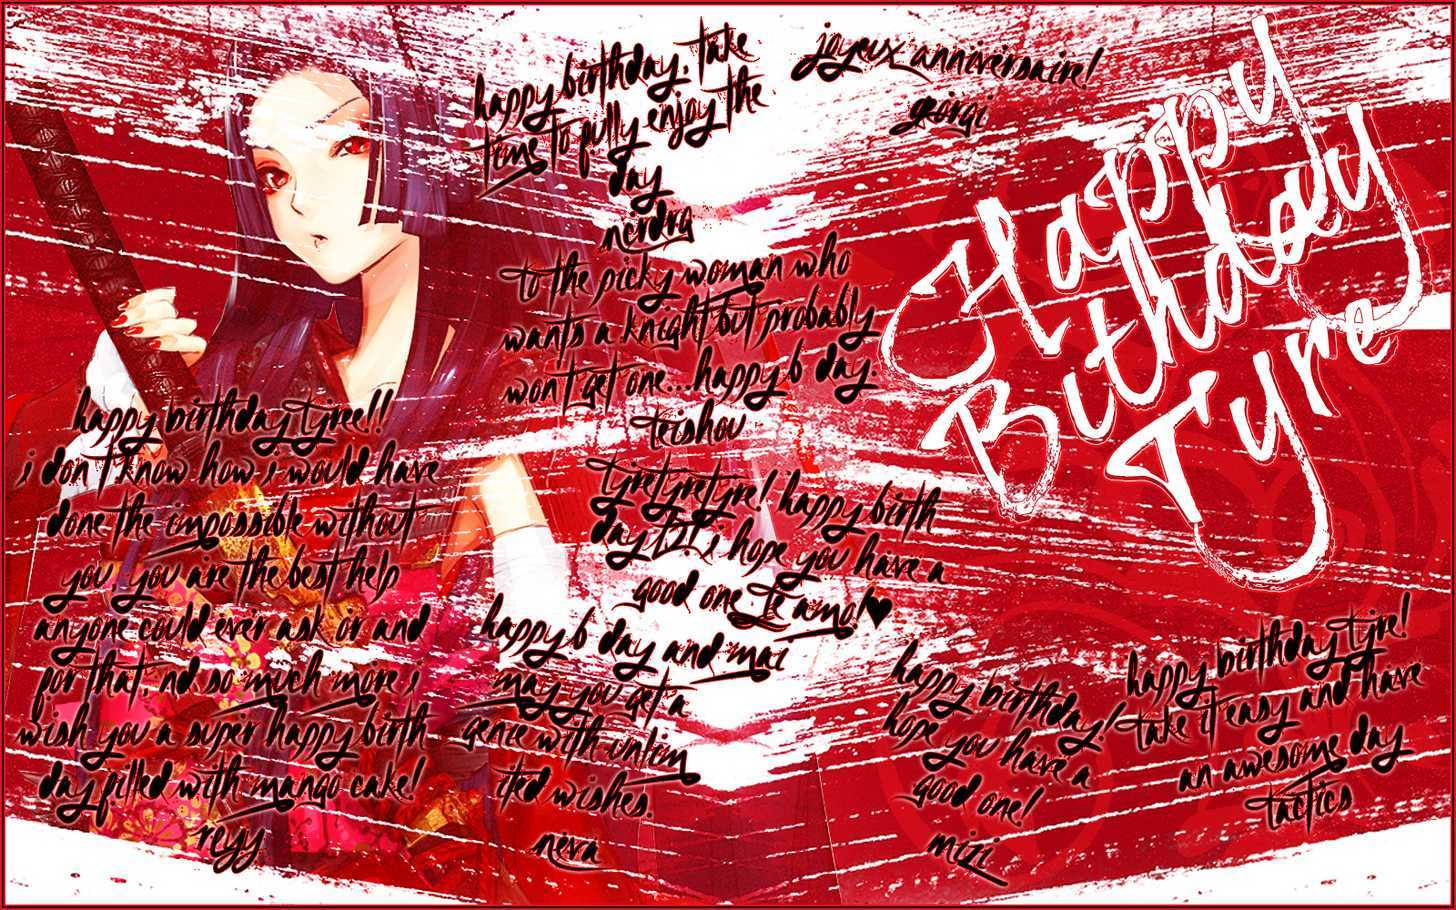 Happy
Bithday
Tyre
happy birthday. take
time to fully enjoy the
day
neidra
joyeux anniversaire!
georgi
to the picky woman who
wants a knight but probably
won't get one...happy b day.
teishou
happy birthday tyree!!
i don't know how i would have
done the impossible without
you. you are the best help
anyone could ever ask or and
for that, nd so much more i
wish you a super happy birth
day filled with mango cake!
reyy
tyretyretyre! happy birth
day! i hope you have a
good one. Te amo!♥
happy b day and mai
may you get a
genie with unlim
ited wishes.
neva
happy birthday!
hope you have a
good one!
mizi
happy birthday tyre!
take it easy and have
an awesome day
tactics